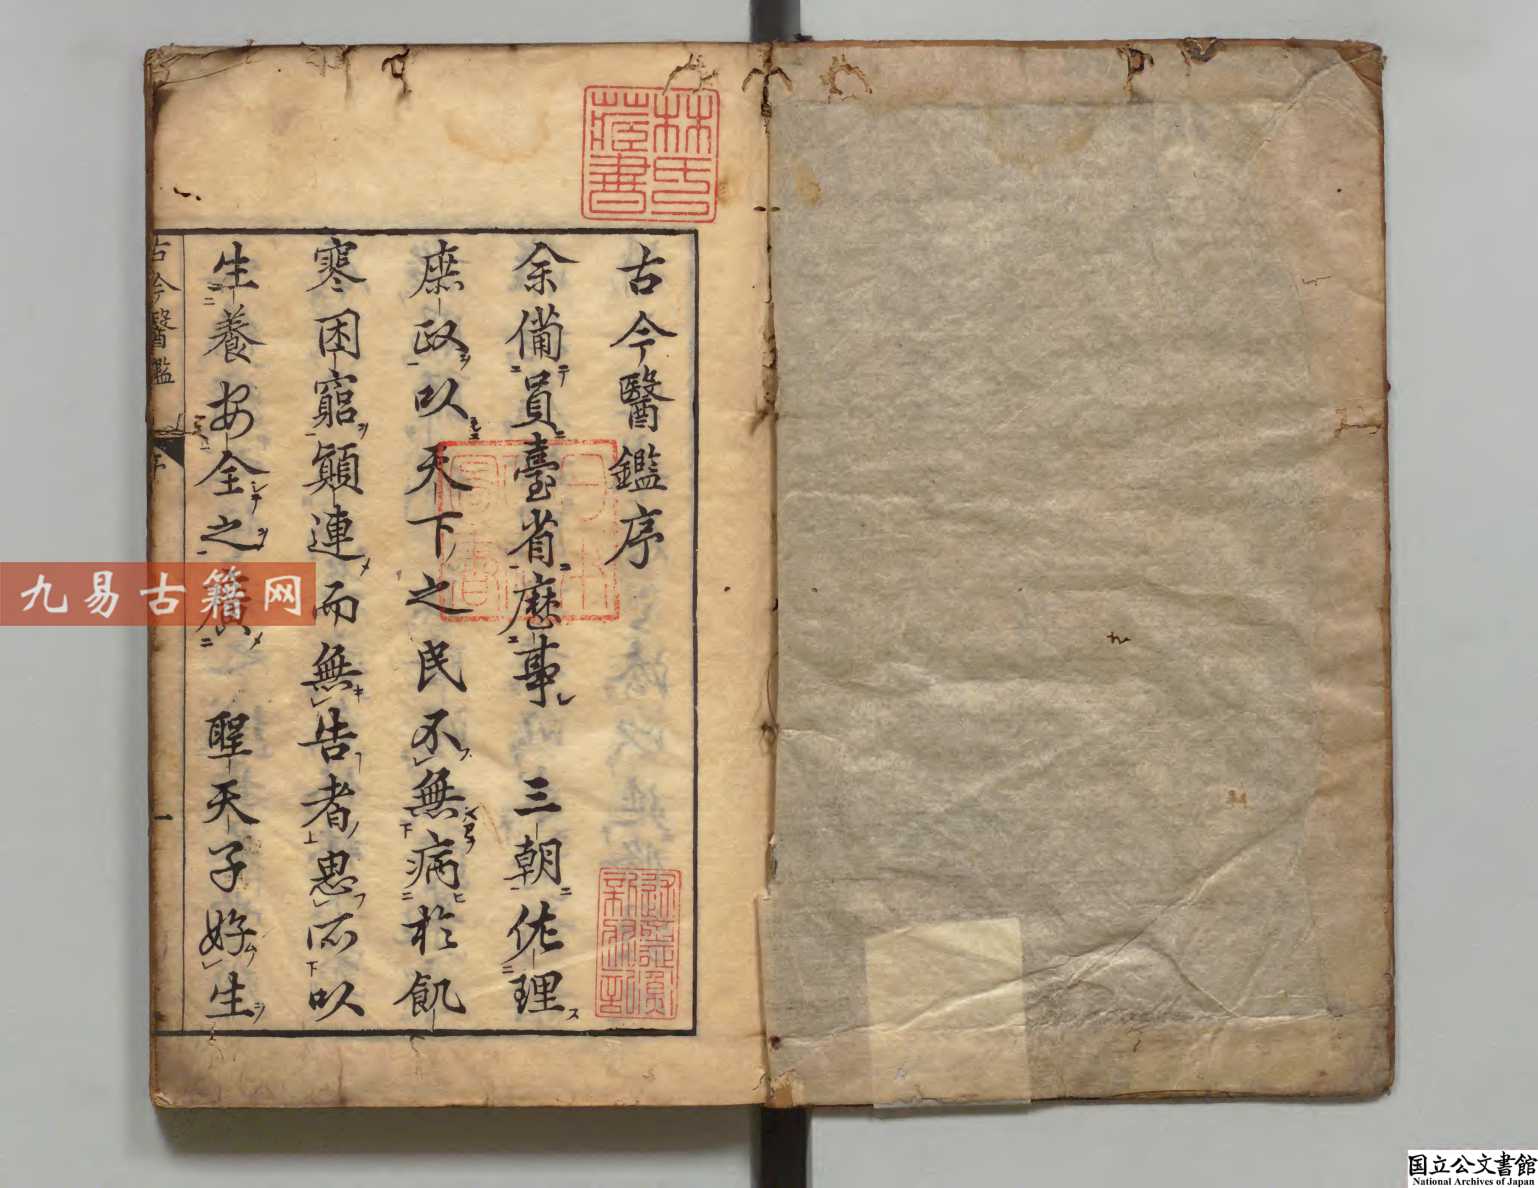 古今醫鑑序
余備員臺省歷事　三朝佐理
庶政以天下之民不無病於飢
寒困窮顛連而無告者思所以
生養安全之廣　聖天子好生
古今醫鑑
序
一
林氏
藏書
日本
九易古籍网
国立公文書館
National Archives of Japan